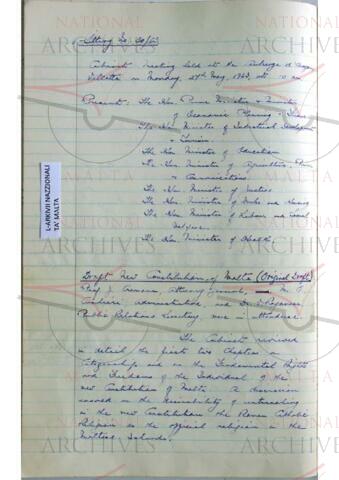 Sitting No: 20/63
Cabinet meeting held at the Auberge d'
Valletta on Monday, 27th May, 1963, at 10 am
Present: The Hon. Prime Minister & Minister
of Economic Planning & Finance
The Hon. Minister of Industrial Development
& Tourism.
The Hon. Minister of Education
The Hon. Minister of Agriculture, Power
& Communications.
The Hon. Minister of Justice
The Hon. Minister of Works and Housing
The Hon. Minister of Labour and Social
Welfare.
The Hon. Minister of Health.
Draft New Constitution of Malta (Original Draft)
Prof J. Cremona, Attorney General,
and Dr
Public Relations were in attendance.
The Cabinet reviewed
in detail the first two Chapters on
Citizenship and on the Fundamental Rights
and Freedoms of the Individual of the
new Constitution of Malta. A discussion
ensued on the desirability of entrenching
in the new Constitution the Roman Catholic
Religion as the official religion in the
Maltese Islands.
L-ARKIVJI NAZZJONALI
TA' MALTA
NATIONAL
ARCHIVES